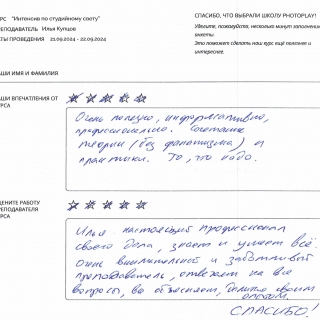 РС "Интенсив по студийному свету"
РЕПОДАВАТЕЛЬ Илья Купцов
ТЫ ПРОВЕДЕНИЯ 21.09.2024 - 22.09.2024
СПАСИБО, ЧТО ВЫБРАЛИ ШКОЛУ PHOTOPLAY!
Уделите, пожалуйста, несколько минут заполнению
анкеты.
Это поможет сделать наш курс ещё полезнее и
интереснее.
АШИ ИМЯ И ФАМИЛИЯ
АШИ ВПЕЧАТЛЕНИЯ ОТ
РСА
Очень полезно, информативно,
профессионально. Сочетание
теории (без фанатизма) и
практики. То, что надо.
ЕНИТЕ РАБОТУ
РЕПОДАВАТЕЛЯ
РСА
Илья - настоящий профессионал
своего дела, знает и умеет всё.
Очень внимательный и заботливый
преподаватель, отвечает на все
вопросы, всё объясняет, делится своим
опытом.
СПАСИБО!